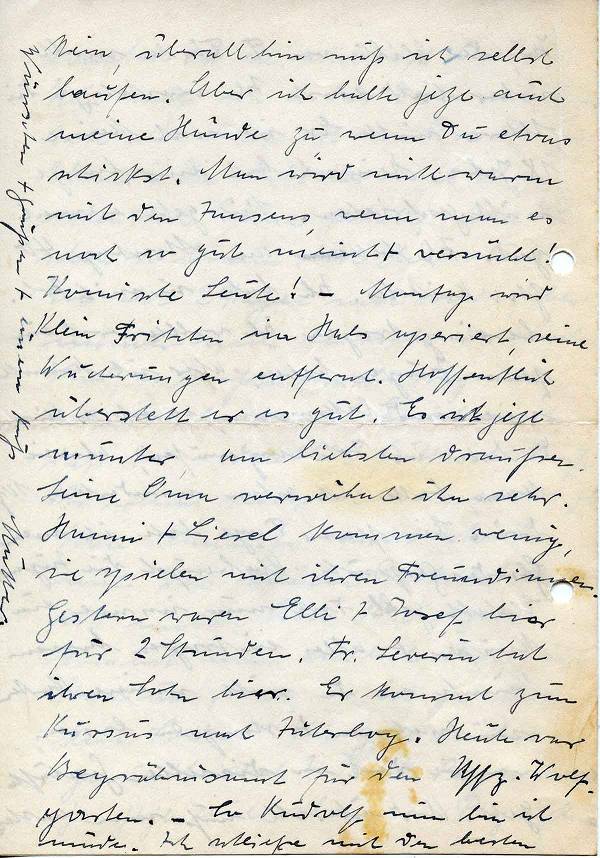 Nein, überall hin muß ich selbst
laufen. Aber ich halte jetz auch
meine Hände zu wenn Du etwas
schickst. Man wird nicht warm
mit den Jansens, wenn man es
noch so gut meint + versucht!
Komische Leute! – Montag wird
Klein Fritzchen im Hals operiert, seine
Wucherungen entfernt. Hoffentlich
übersteht er es gut. Es ist jetz
munter am liebsten draußen.
Seine Oma verwöhnt ihn sehr.
Hanni + Liesel kommen wenig,
sie spielen mit ihren Freundinnen.
Gestern waren Elli + Josef hier
für 2 Stunden. Fr. Severin hat
ihren Sohn hier. Er kommt zum
Kursus nach Jüterbog. Heute war
Begräbnisamt für den Uffz. Wolf-
garten. – So Rudolf nun bin ich
müde. Ich schließe mit den besten
Wünschen + Grüßen + einem Kuß
Mutter.